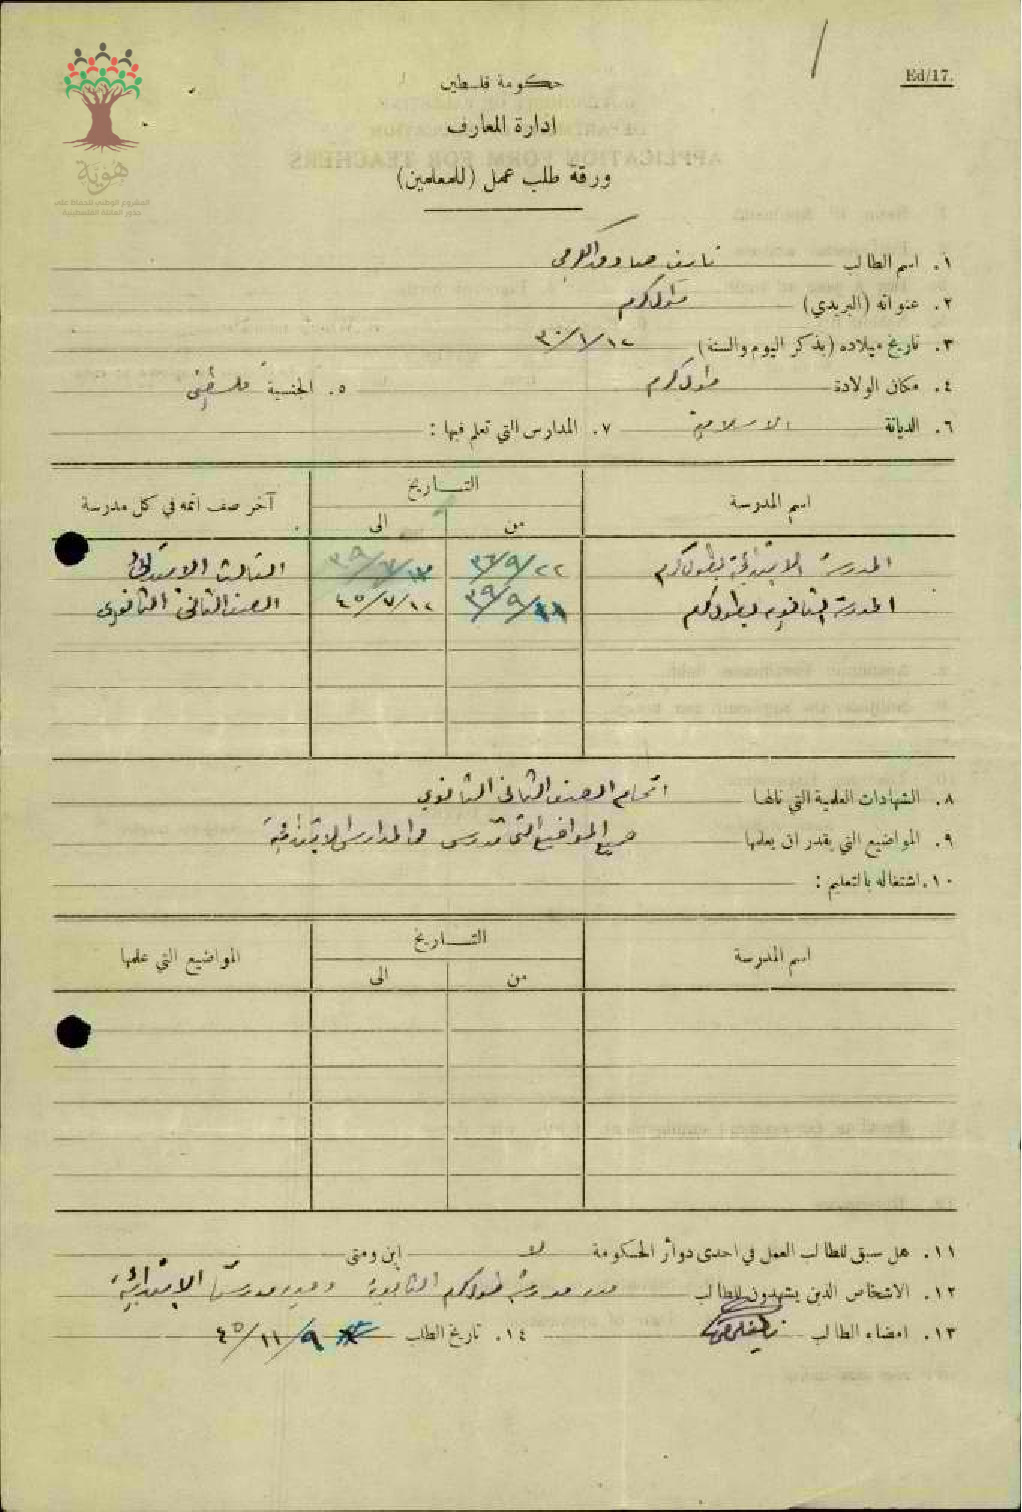 Ed/17.
هوية
المشروع الوطني للحفاظ على
جذور العائلة الفلسطينية
حكومة فلسطين
ادارة المعارف
ورقة طلب عمل (للمعلمين)
١. اسم الطالب نايف صادق
٢. عنوانه (البريدي) طولكرم
٣. تاريخ ميلاده (بذكر اليوم والسنة) ٣٠/١/١٢
٤. مكان الولادة طولكرم ٥. الجنسية فلسطيني
٦. الديانة الاسلامية ٧. المدارس التي تعلم فيها :
اسم المدرسة التاريخ آخر صف اتمه في كل مدرسة
من الى
المدرسة الابتدائية بطولكرم ٣٦/٩/٢٢ ٣٩/٧/١٣ الثالث الابتدائي
المدرسة الثانويه بطولكرم ٣٩/٩/ ٤٥/٧/١٢ الصف الثاني الثانوي
٨. الشهادات العلمية التي نالها اتمام الصف الثاني الثانوي
٩. المواضيع التي يقدر ان يعلمها جميع المواضيع التي تدرس في المدارس الابتدائية
١٠. اشتغاله بالتعليم :
اسم المدرسة التاريخ المواضيع التي علمها
من الى
١١. هل سبق للطالب العمل في احدى دوائر الحكومة لا اين ومتى
١٢. الاشخاص الذين يشهدون للطالب مدير مدرسة طولكرم الثانوية ومدير مدرستها الابتدائية
١٣. امضاء الطالب ١٤. تاريخ الطلب ٤٥/١١/٩